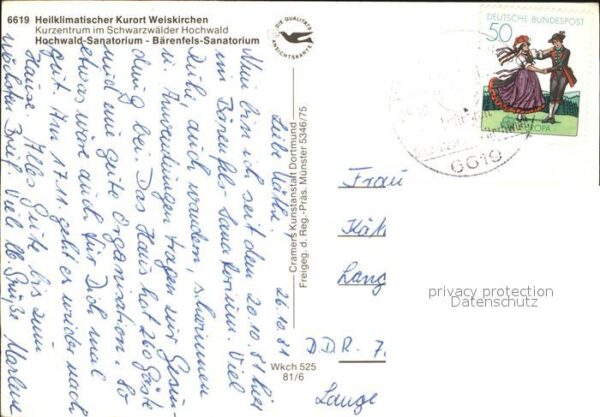 6619 Heilklimatischer Kurort Weiskirchen
Kurzentrum im Schwarzwälder Hochwald
Hochwald-Sanatorium - Bärenfels-Sanatorium
DIE QUALITÄTS
ANSICHTSKARTE
DEUTSCHE BUNDESPOST
50
EUROPA
6619
26.10.81
Liebe Käthe!
Nun bin ich seit dem 20.10.81 hier
im Bärenfels-Sanatorium. Viel
Ruhe, auch wandern, schwimmen
u. Anwendungen tragen zur Gesun-
dung bei. Das Haus hat 260 Gäste
und eine gute Organisation. So
etwas wäre auch für Dich mal
gut. Am 17.11. geht es wieder nach
Hause. Alles Gute bis zum
nächsten Brief. Viel lb. Grüße Marlene
Cramers Kunstanstalt Dortmund
Freigeg. d. Reg.-Präs. Münster 5346/75
Wkch 525
81/6
Frau
Käth
Lang
D.D.R. 7.
Lange
privacy protection
Datenschutz